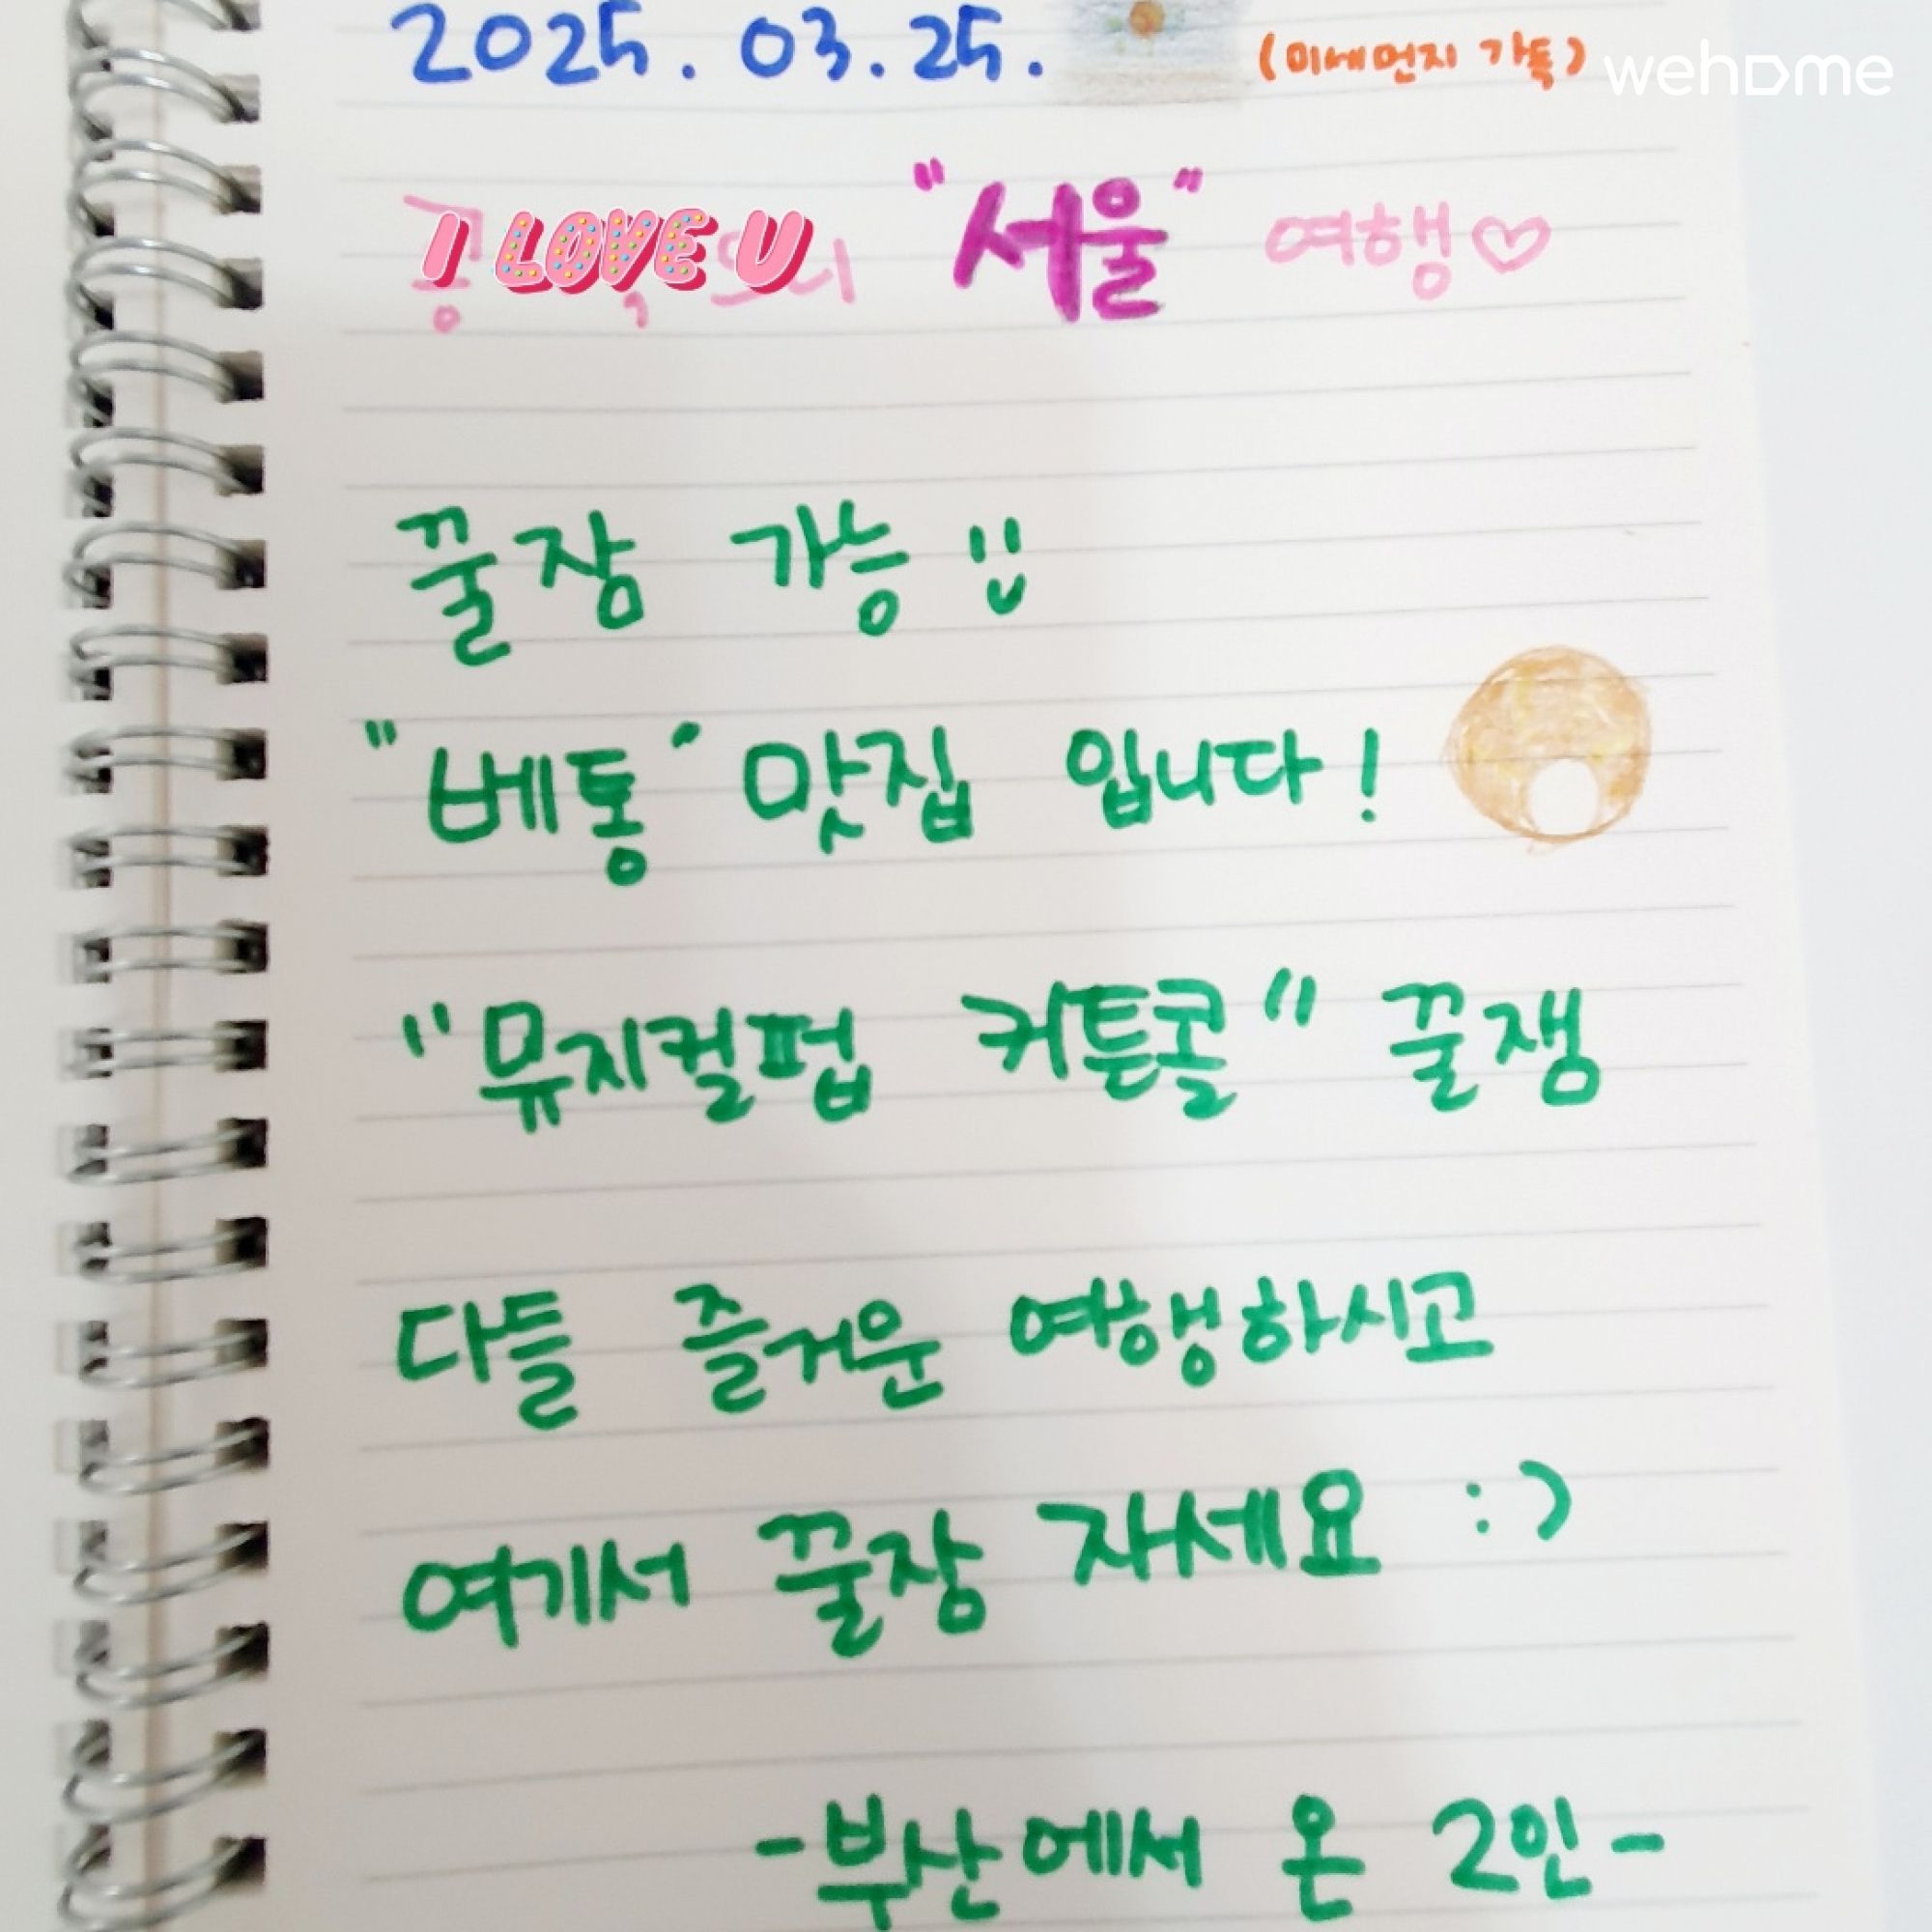 2025. 03. 25. (미세먼지 가득) wehome
I LOVE U "서울" 여행♡
꿀잠 가능 :)
"베통" 맛집 입니다!
"뮤지컬펍 커튼콜" 꿀잼
다들 즐거운 여행하시고
여기서 꿀잠 자세요 :)
-부산에서 온 2인-